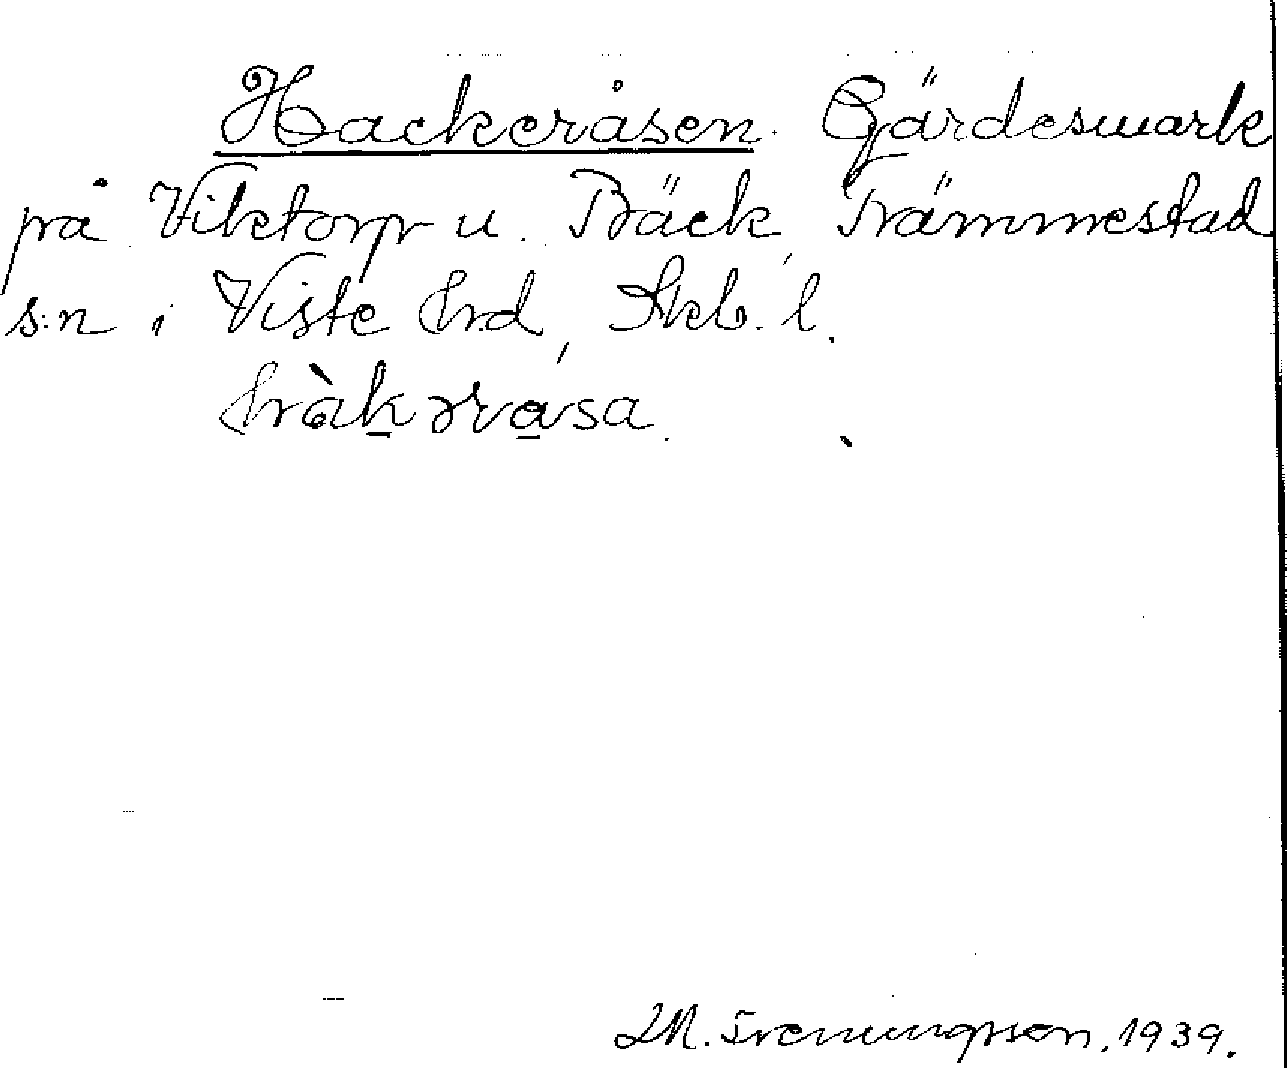 Hackeråsen. Gärdesmark
på Viktorp u. Bäck, Främmestad
s:n i Viste hrd, Skb. l.
hàkərråsa.
Fremlingsson. 1939.